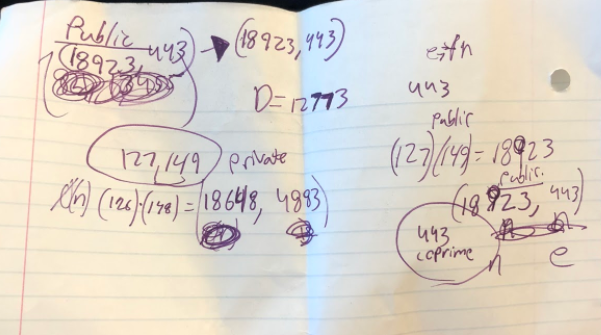 Public
(18923, 443) → (18923, 443)
D = 12773
127, 149 private
(126)·(148) = (18648, 4883)
443
public
(127)(149) = 18923
public
(18923, 443)
443
coprime
n e